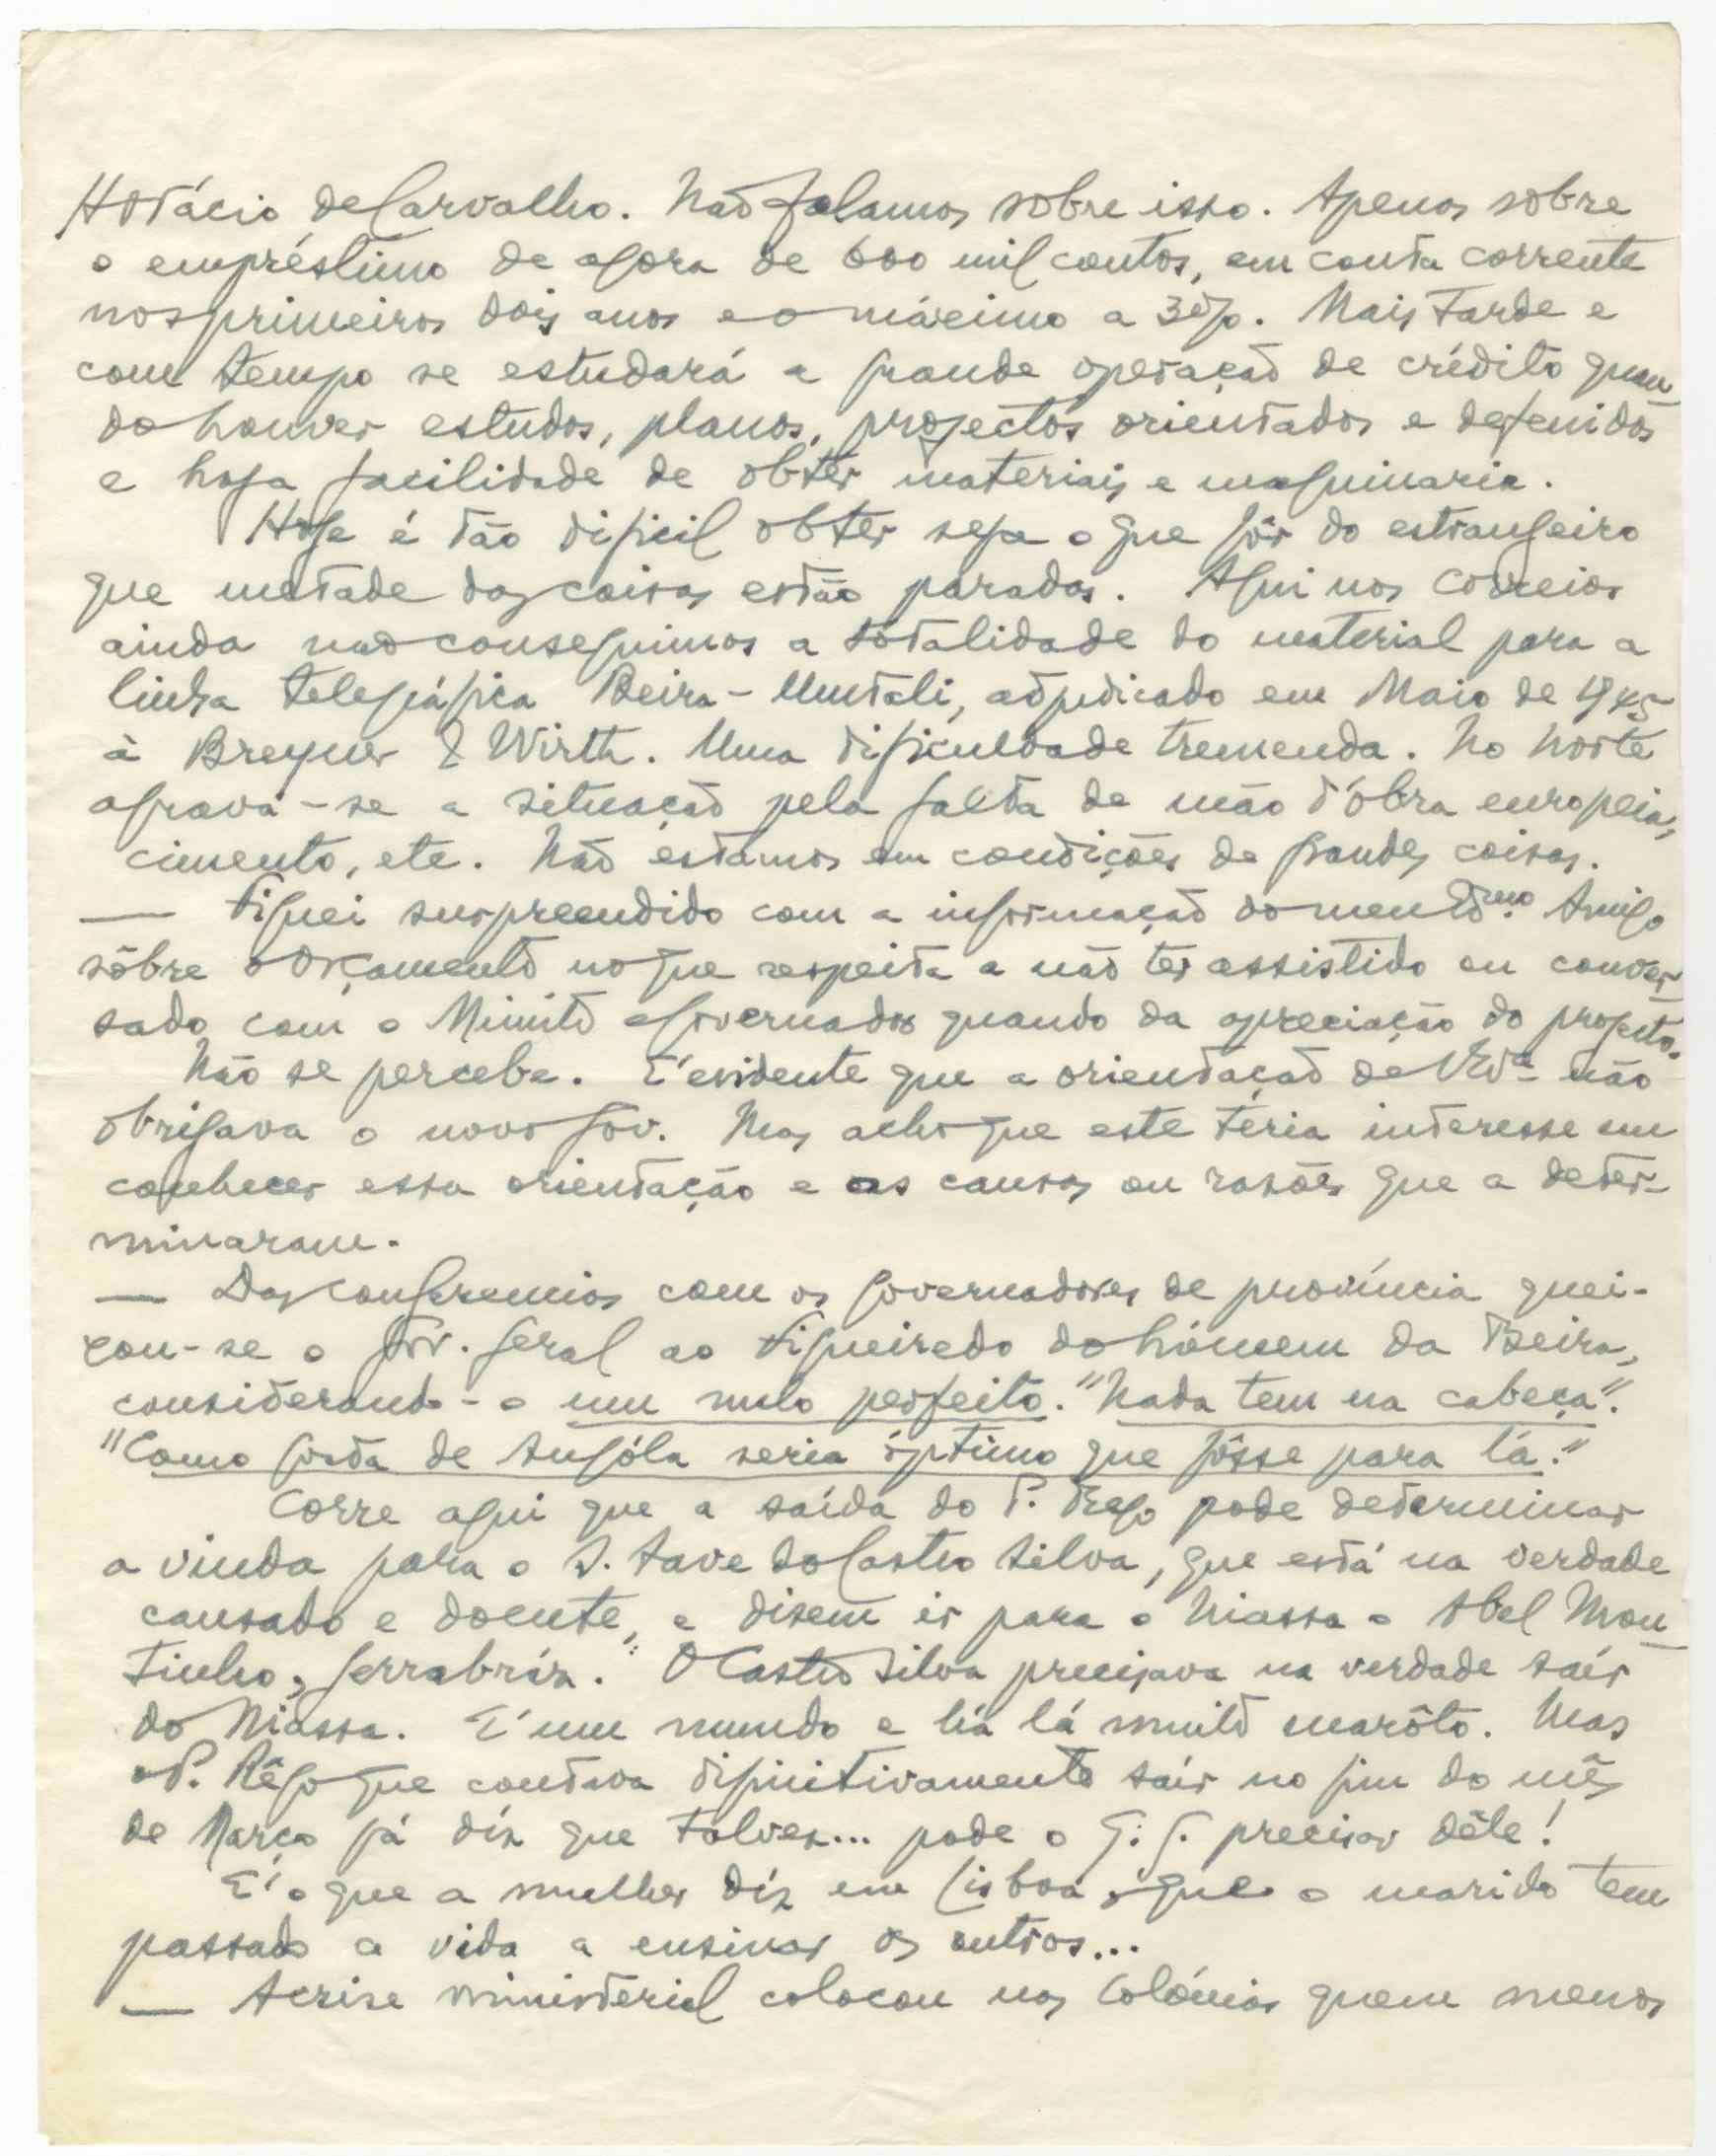 Horácio de Carvalho. Não falamos sobre isso. Apenas sobre
o empréstimo de agora de 600 mil contos, em conta corrente
nos primeiros dois anos e o máximo a 3%. Mais tarde e
com tempo se estudará a grande operação de crédito quan-
do houver estudos, planos, projectos orientados e defenidos
e haja facilidade de obter materiais e maquinaria.
Hoje é tão dificil obter seja o que fôr do estrangeiro
que metade das coisas estão paradas. Aqui nos Correios
ainda não conseguimos a totalidade do material para a
linha telegráfica Beira - Umtali, adjudicado em Maio de 945
à Breyner & Wirth. Uma dificuldade tremenda. No norte
agrava-se a situação pela falta de mão d'óbra europeia,
cimento, etc. Não estamos em condições de grandes coisas.
— Fiquei surpreendido com a informação do meu Amigo
sôbre o Orçamento no que respeita a não ter assistido ou conver-
sado com o Ministro e Governador quando da apreciação do projecto.
Não se percebe. E' evidente que a orientação de V. não
obrigava o novo Gov. Mas acho que este teria interesse em
conhecer essa orientação e as causas ou rasões que a deter-
minaram.
— Das conferencias com os governadores de província quei-
xou-se o Gov. Geral ao Figueiredo do hómem da Beira,
considerando-o um nulo perfeito. "Nada tem na cabeça".
"Como gosta de Angóla seria óptimo que fôsse para lá."
Corre aqui que a saída do P. Rego pode determinar
a vinda para o S. Save do Castro Silva, que está na verdade
cansado e doente, e disem ir para o Niassa o Abel Mou-
tinho, ferrabráz. O Castro Silva precisava na verdade saír
do Niassa. E' um mundo e há lá muito marôto. Mas
o P. Rêgo que contava difinitivamente saír no fim do mês
de Março já diz que talvez... pode o G. G. precisar dêle!
E' o que a mulher diz em Lisboa, que o marido tem
passado a vida a ensinar os outros...
— A crise ministerial colocou nas Colónias quem menos